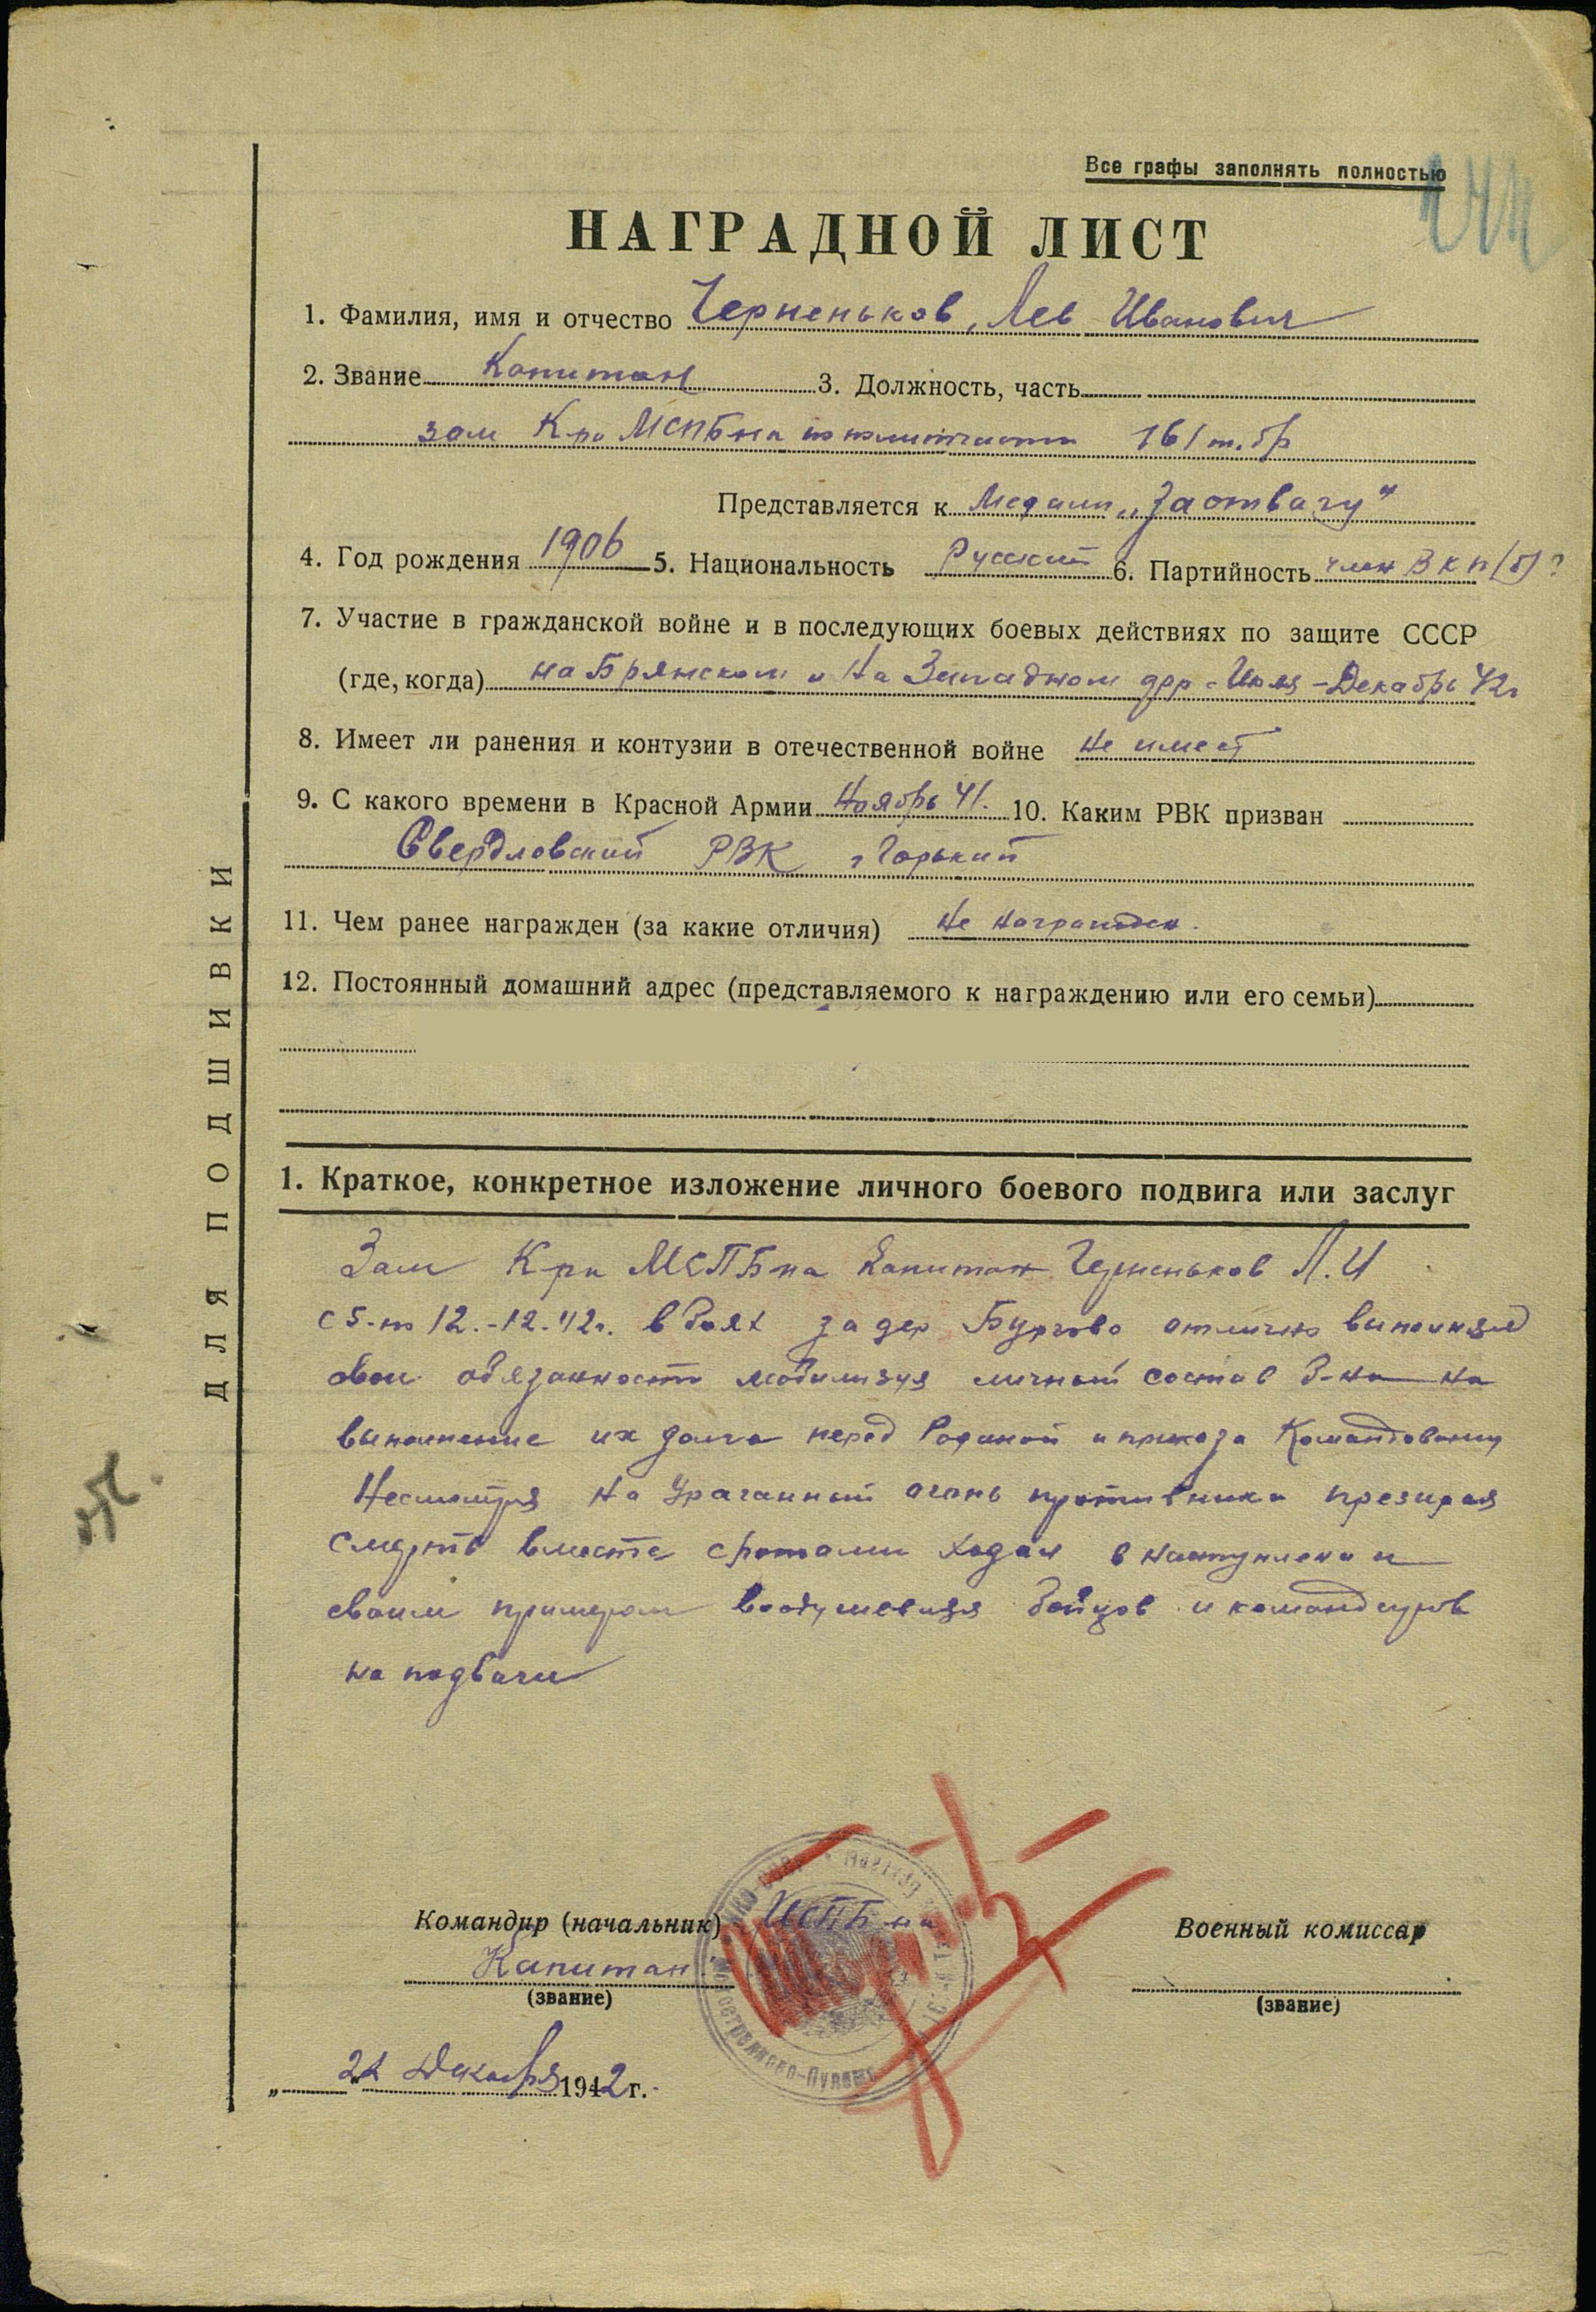 Все графы заполнять полностью
НАГРАДНОЙ ЛИСТ
1. Фамилия, имя и отчество Черненьков, Лев Иванович
2. Звание Капитан 3. Должность, часть
зам К-ра МСПБ-на по политчасти 161 т.бр
Представляется к Медали „За отвагу"
4. Год рождения 1906 5. Национальность Русский 6. Партийность член ВКП(б)
7. Участие в гражданской войне и в последующих боевых действиях по защите СССР
(где, когда) на Брянском и на Западном фр. Июль – Декабрь 42г
8. Имеет ли ранения и контузии в отечественной войне не имеет
9. С какого времени в Красной Армии Ноябрь 41. 10. Каким РВК призван
Свердловский РВК г Горький
11. Чем ранее награжден (за какие отличия) не награжден.
12. Постоянный домашний адрес (представляемого к награждению или его семьи)
ДЛЯ ПОДШИВКИ
1. Краткое, конкретное изложение личного боевого подвига или заслуг
Зам К-ра МСПБ-на Капитан Черненьков Л.И
с 5-по 12.-12.42г. в боях за дер отлично выполнял
свои обязанности мобилизуя личный состав б-на на
выполнение их долга перед Родиной и приказа Командования
Несмотря на ураганный огонь противника презирая
смерть вместе с ротами ходил в наступление и
своим примером воодушевляя бойцов и командиров
на подвиги
Командир (начальник) МСПБ-на
Военный комиссар
Капитан
(звание)
(звание)
„22" Декабря 1942 г.